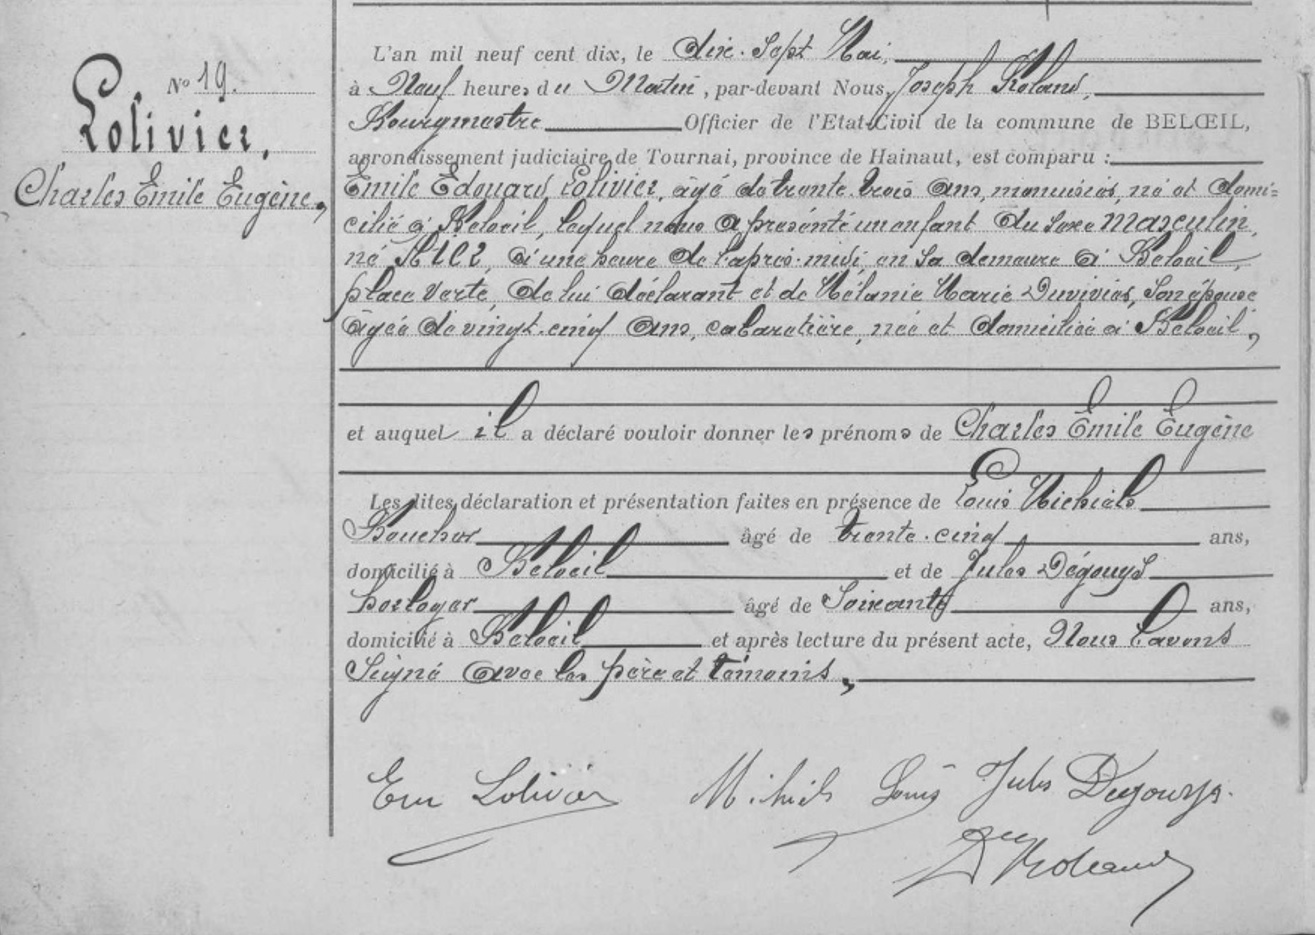 N° 19.
Lolivier,
Charles Emile Eugène,
L'an mil neuf cent dix, le dix-sept Mai,
à Neuf heures du Matin, par-devant Nous, Joseph Roland,
Bourgmestre Officier de l'Etat-Civil de la commune de BELŒIL,
arrondissement judiciaire de Tournai, province de Hainaut, est comparu :
Emile Edouard Lolivier, âgé de trente-trois ans, menuisier, né et domi-
cilié à Belœil, lequel nous a présenté un enfant du sexe masculin,
né hier, à une heure de l'après-midi, en sa demeure à Belœil,
place verte, de lui déclarant et de Mélanie Marie Duvivier, son épouse
âgée de vingt-cinq ans, cabaretière, née et domiciliée à Belœil,
et auquel il a déclaré vouloir donner les prénoms de Charles Emile Eugène
Les dites déclaration et présentation faites en présence de Louis Michiels
Boucher âgé de trente-cinq ans,
domicilié à Belœil et de Jules Dégouys
horloger âgé de Soixante ans,
domicilié à Belœil et après lecture du présent acte, Nous l'avons
Signé avec les père et témoins,
Em Lolivier Michiels Louis Jules Degouys.
Roland